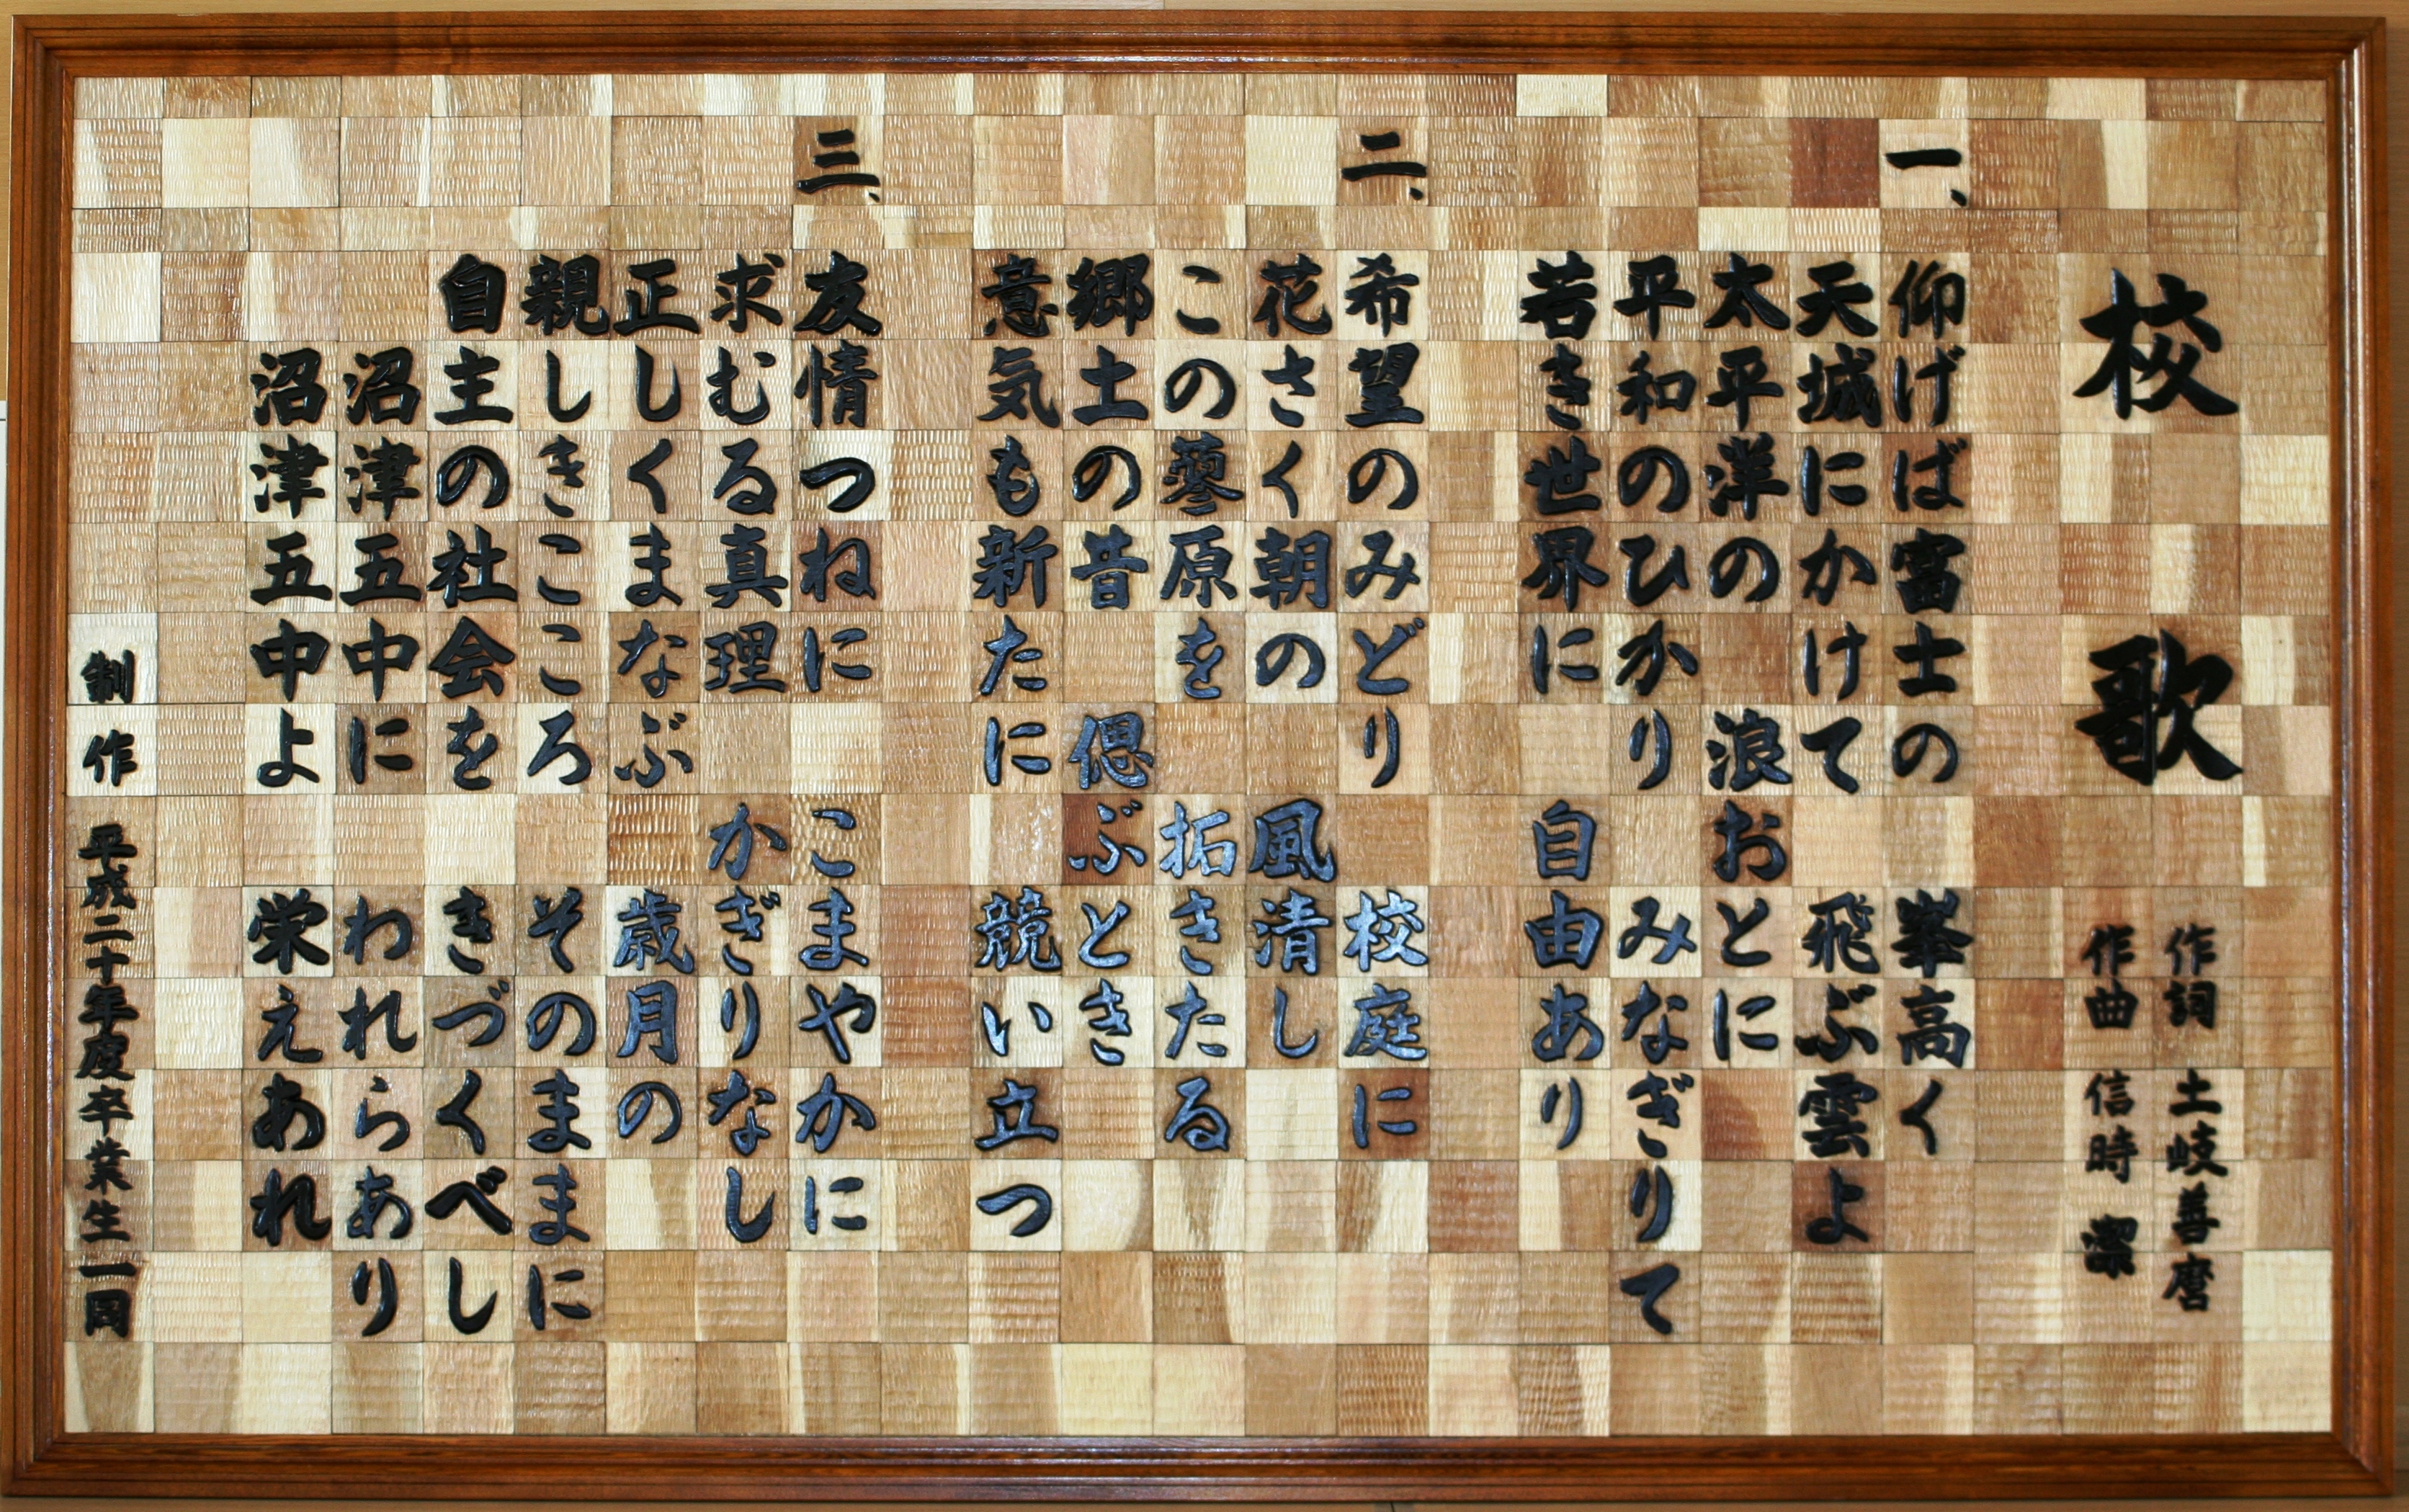 校歌
作詞 土岐善麿
作曲 信時 潔
一、
仰げば富士の 峯高く
天城にかけて 飛ぶ雲よ
太平洋の 浪おとに
平和のひかり みなぎりて
若き世界に 自由あり
二、
希望のみどり 校庭に
花さく朝の 風清し
この蓼原を 拓きたる
郷土の昔 偲ぶとき
意気も新たに 競い立つ
三、
友情つねに こまやかに
求むる真理 かぎりなし
正しくまなぶ 歳月の
親しきこころ そのままに
自主の社会を きづくべし
沼津五中に われらあり
沼津五中よ 栄えあれ
制作 平成二十年度卒業生一同